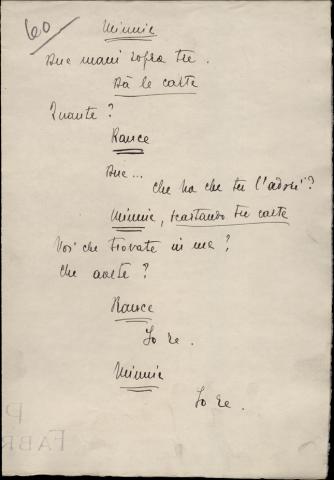 60
Minnie
Due mani sopra tre.
Dà le carte
Quante?
Rance
Due...
Che ha che tu l'adori?
Minnie, scartando tre carte
Voi che trovate in me?
Che avete?
Rance
Io re.
Minnie
Io re.
P
FABR